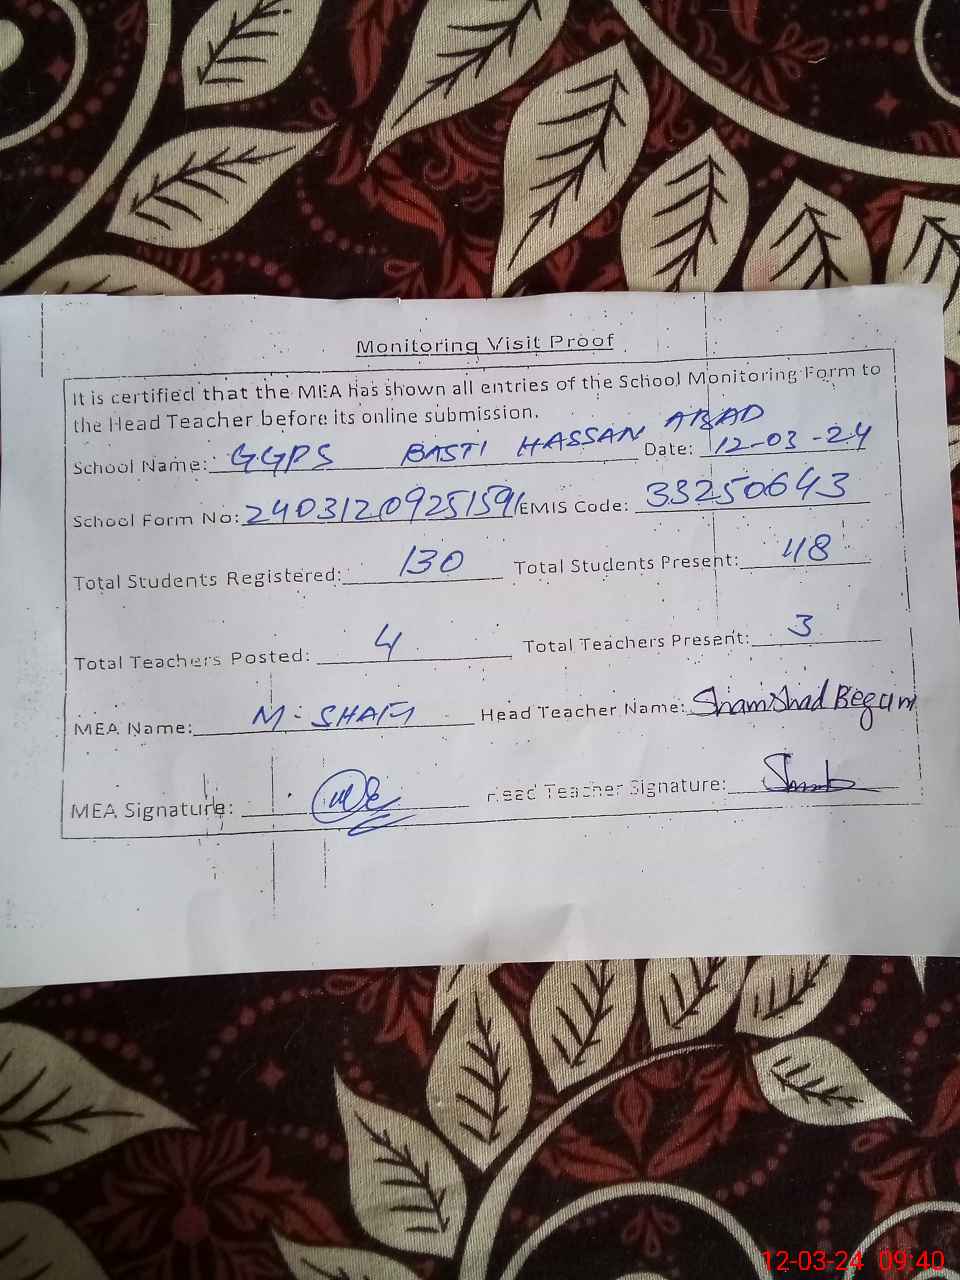 Monitoring Visit Proof
It is certified that the MEA has shown all entries of the School Monitoring Form to
the Head Teacher before its online submission.
School Name: GGPS BASTI HASSAN ABAD Date: 12-03-24
School Form No: 240312092515916 EMIS Code: 33250643
Total Students Registered: 130 Total Students Present: 118
Total Teachers Posted: 4 Total Teachers Present: 3
MEA Name: M. Head Teacher Name: Shamshad Begum
MEA Signature: Head Teacher Signature:
12-03-24 09:40